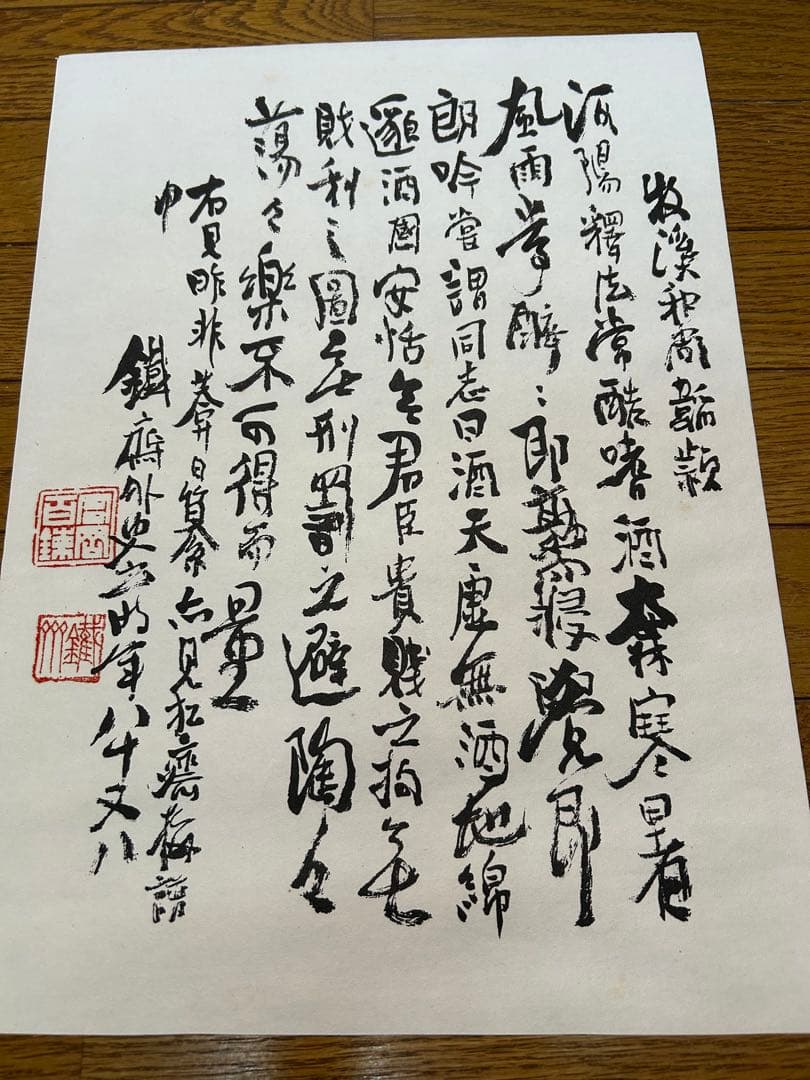 牧溪和尚
河陽釋法常酷嗜酒無寒暑
風雨常醉〻即熟寢覺即
朗吟嘗謂同志曰酒天虛無酒地綿
邈酒國安恬無君臣貴賤之拘無
財利之圖無刑罰之避陶々
蕩々樂不可得而量
右見昨非葊日纂亦見齋梅譜
中
鐵齋外史云時年八十又八
富岡百鍊